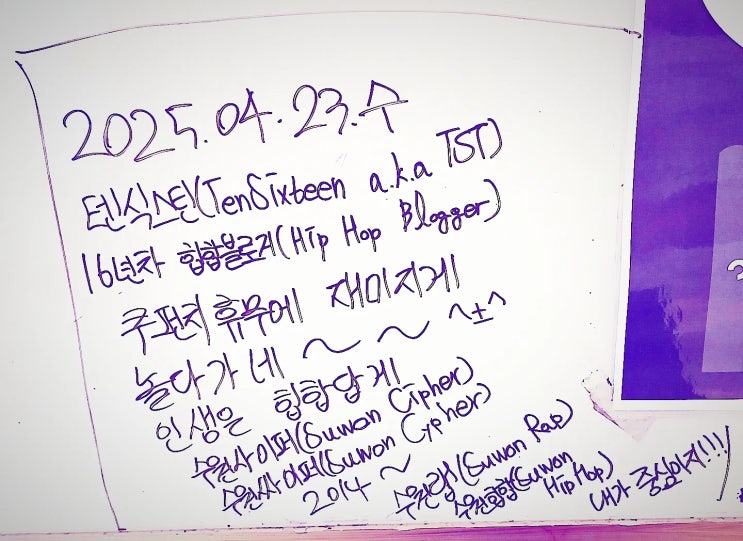 2025.04.23.수
텐식스틴(TenSixteen a.k.a TST)
16년차 힙합블로거(Hip Hop Blogger)
쿠펀치 휴무에 재미지게
놀다가네~~^±^
인생은 힙합답게
수원사이퍼(Suwon Cipher)
수원싸이퍼(Suwon Cypher)
2014~
수원랩(Suwon Rap)
수원힙합(Suwon HipHop)
내가 중심이지!!!